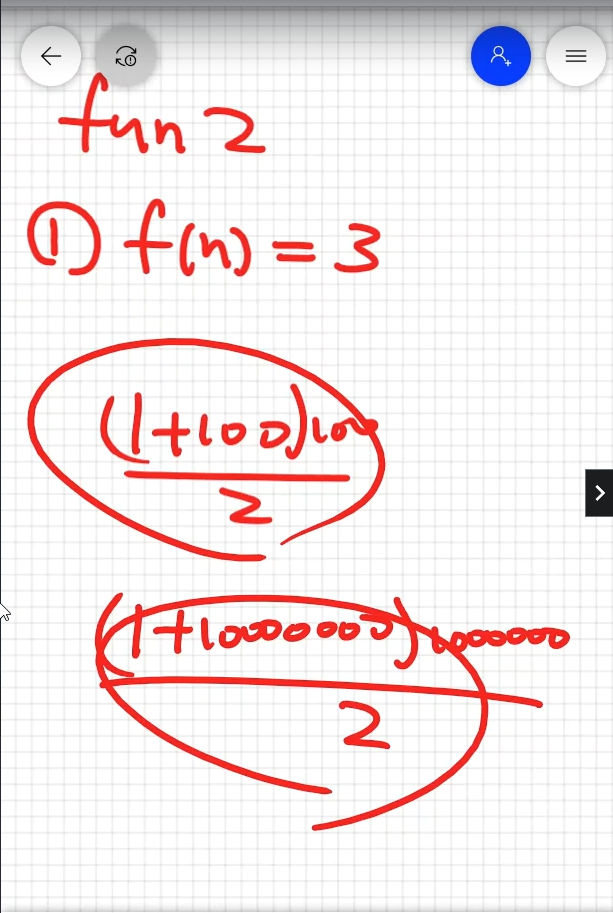 fun 2
① f(n) = 3
(1+100)100
2
(1+10000000)1000000
2